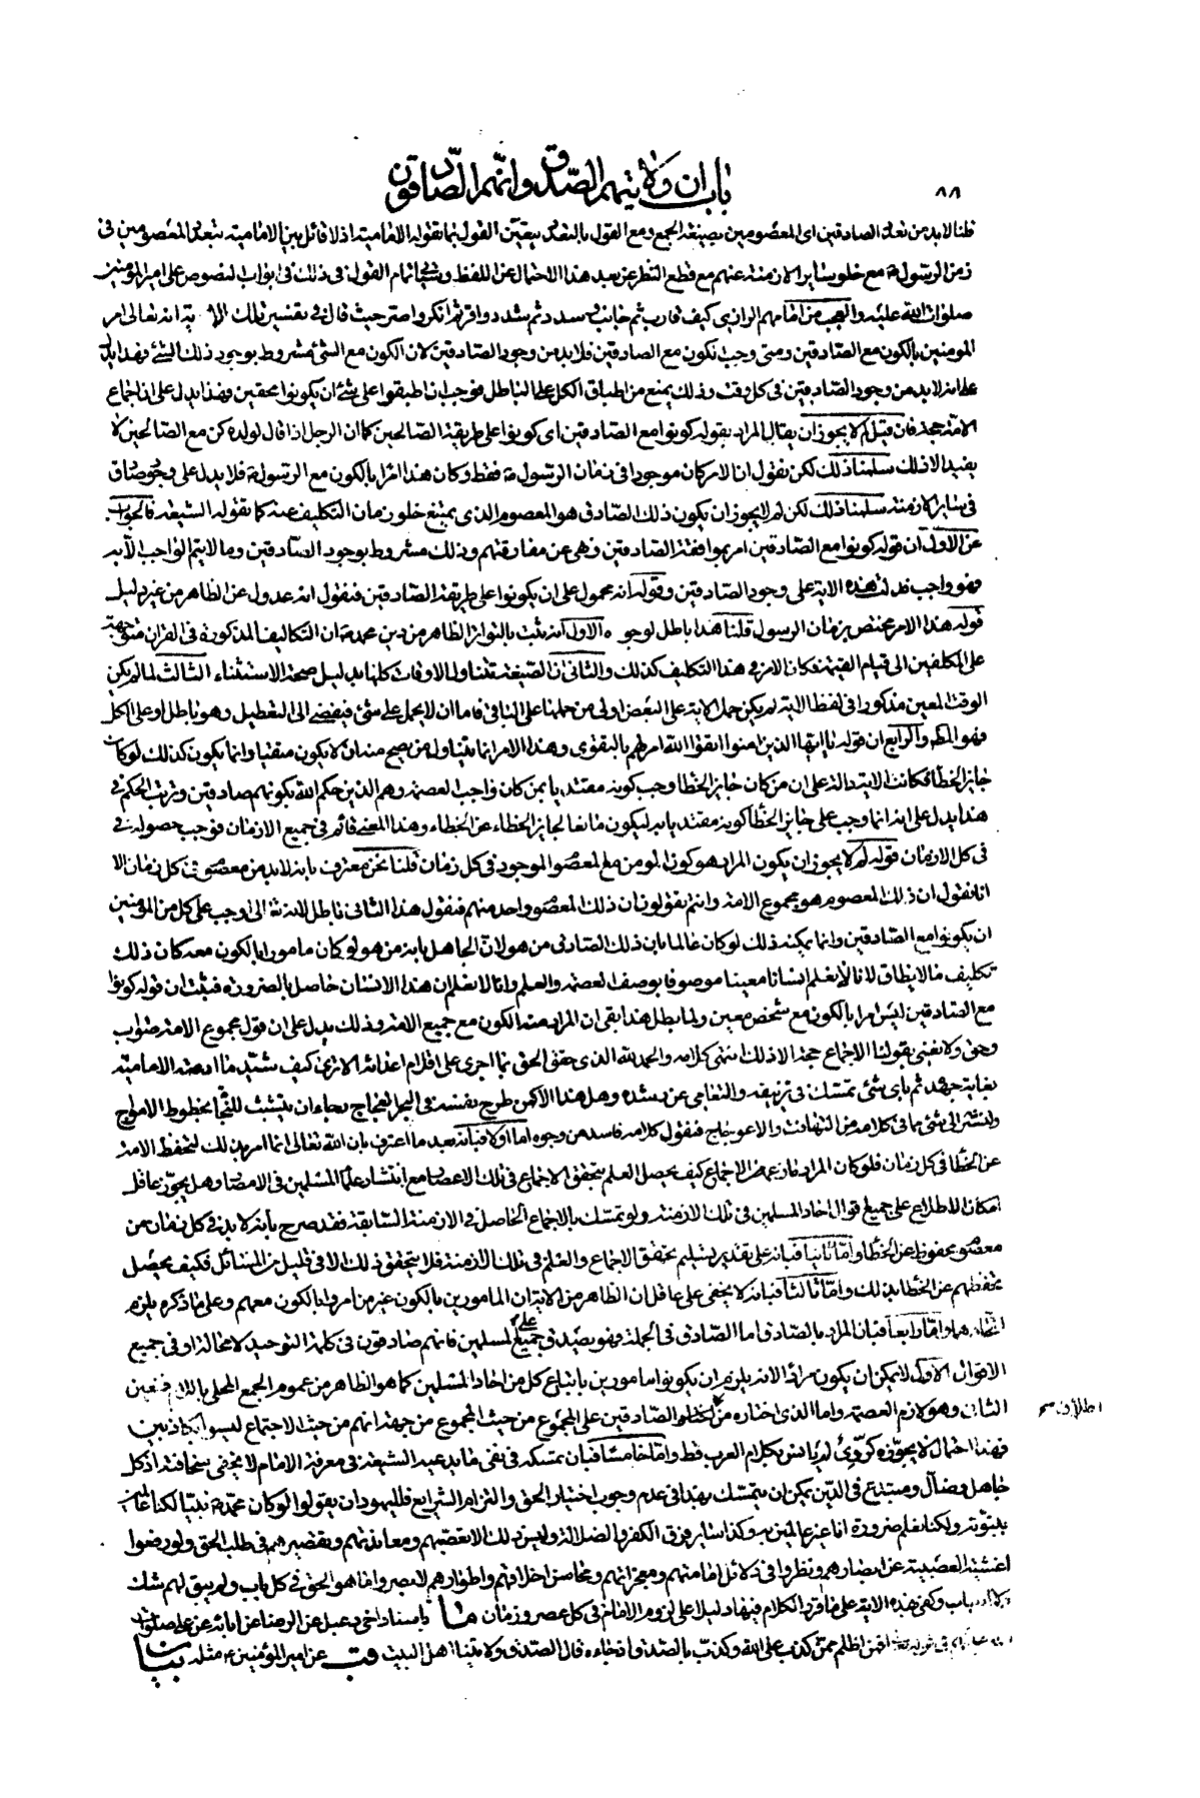 ٨٨
باب ان ولايتهم الصدق وانهم الصادقون
قلنا لابد من تعدد الصادقين اى المعصومين بصيغة الجمع ومع القول بالتعدد يتعين القول بما تقوله الامامية اذ لا قائل بين الامامية بتعدد المعصومين في
زمن الرسول ص مع خلو ساير الازمنة عنهم مع قطع النظر عن بعد هذا الاحتمال عن اللفظ وسياتى تمام القول فى ذلك فى ابواب النصوص على امير المؤمنين
صلوات الله عليه والعجب من امامهم الرازى كيف قارب ثم جانب وسدد ثم شدد واقر ثم انكر واصر حيث قال فى تفسير تلك الا ية انه تعالى امر
المؤمنين بالكون مع الصادقين ومتى وجب الكون مع الصادقين فلابد من وجود الصادقين لان الكون مع الشئ مشروط بوجود ذلك الشئ فهذا يدل
على انه لابد من وجود الصادقين فى كل وقت وذلك يمنع من اطباق الكل على الباطل فوجب ان اطبقوا على شئ ان يكونوا محقين فهذا يدل على ان اجماع
الامة حجة فان قيل لم لا يجوز ان يقال المراد بقوله كونوا مع الصادقين اى كونوا على طريقة الصالحين كما ان الرجل اذا قال لولده كن مع الصالحين لا
يفيد الا ذلك سلمنا ذلك لكن نقول ان الامر كان موجودا فى زمان الرسول ص فقط وكان هذا امرا بالكون مع الرسول ص فلا يدل على وجود صادق
فى ساير الازمنة سلمنا ذلك لكن لم لا يجوز ان يكون ذلك الصادق هو المعصوم الذى يمتنع خلو زمان التكليف عنه كما تقوله الشيعة فالجواب
عن الاول ان قوله كونوا مع الصادقين امر بموافقة الصادقين ونهى عن مفارقتهم وذلك مشروط بوجود الصادقين وما لا يتم الواجب الا به
فهو واجب فدلت هذه الاية على وجود الصادقين وقوله انه محمول على ان يكونوا على طريقة الصادقين فنقول انه عدول عن الظاهر من غير دليل
قوله هذا الامر مختص بزمان الرسول قلنا هذا باطل لوجوه الاول انه ثبت بالتواتر الظاهر من دين محمد ص ان التكاليف المذكورة فى القران متوجهة
على المكلفين الى قيام القيمة فكان الامر فى هذا التكليف كذلك والثانى ان الصيغة تتناول الاوقات كلها بدليل صحة الاستثناء الثالث لما لم يكن
الوقت المعين مذكورا فى لفظ الاية لم يكن حمل الاية على البعض اولى من حملها على الباقى فاما ان لا يحمل على شئ فيفضى الى التعطيل وهو باطل او على الكل
فهو المط والرابع ان قوله يا ايها الذين امنوا اتقوا الله امر لهم بالتقوى وهذا الامر انما يتناول من يصح منه ان لا يكون متقيا وانما يكون كذلك لو كان
جايز الخطأ فكانت الاية دالة على ان من كان جايز الخطا وجب كونه مقتديا بمن كان واجب العصمة وهم الذين حكم الله بكونهم صادقين وترتب الحكم فى
هذا يدل على انه انما وجب على جايز الخطأ كونه مقتديا به ليكون مانعا لجايز الخطاء عن الخطاء وهذا المعنى قائم فى جميع الازمان فوجب حصوله فى
كل الازمان قوله لم لا يجوز ان يكون المراد هو كون المؤمن مع المعصوم الموجود فى كل زمان قلنا نحن معترف بانه لابد من معصوم فى كل زمان الا
انا نقول ان ذلك المعصوم هو مجموع الامة وانتم تقولون ان ذلك المعصوم واحد منهم فنقول هذا الثانى باطل لانه تعالى اوجب على كل من المؤمنين
ان يكونوا مع الصادقين وانما يمكنه ذلك لو كان عالما بان ذلك الصادق من هو لان الجاهل بانه من هو لو كان مامورا بالكون معه كان ذلك
تكليف ما لا يطاق لانا لا نعلم انسانا معينا موصوفا بوصف العصمة والعلم وانا لا نعلم ان هذا الانسان حاصل بالضرورة فثبت ان قوله كونوا
مع الصادقين ليس امرا بالكون مع شخص معين ولما بطل هذا بقى ان المراد منه الكون مع جميع الامة وذلك يدل على ان قول مجموع الامة صواب
وحق ولا نعنى بقولنا الاجماع حجة الا ذلك انتهى كلامه والحمد لله الذى حقق الحق بما اجرى على اقلام اعدائه الا ترى كيف شيد ما ادعته الامامية
بغاية جهده ثم باى شئ تمسك فى تزييفه والتعامى عن رشده وهل هذا الا كمن طرح نفسه فى البحر العجاج رجاء ان يتشبث للنجاة بخطوط الامواج
ولنشر الى شئ مما فى كلامه من التهافت والاعوجاج فنقول كلامه فاسد من وجوه اما اولا فبانه بعد ما اعترف بان الله تعالى انما امر بذلك لتحفظ الامة
عن الخطأ فى كل زمان فلو كان المراد ما زعمه من الاجماع كيف يحصل العلم بتحقق الاجماع فى تلك الاعصار مع انتشار علماء المسلمين فى الامصار وهل يجوز عاقل
امكان الاطلاع على جميع اقوال احاد المسلمين فى تلك الازمنة ولو تمسك بالاجماع الحاصل فى الازمنة السابقة فقد صرح بانه لابد فى كل زمان من
معصوم محفوظ عن الخطأ واما ثانيا فبانه على تقدير تسليم تحقق الاجماع والعلم فى تلك الازمنة فلا يتحقق ذلك الا فى قليل من المسائل فكيف يحصل
تحفظهم عن الخطا بذلك واما ثالثا فبانه لا يخفى على عاقل ان الظاهر من الاية ان المامورين بالكون غير من امروا بالكون معهم وعلى ما ذكره يلزم
اتحادهما واما رابعا فبان المراد بالصادق اما الصادق فى الجملة فهو يصدق على جميع المسلمين فانهم صادقون فى كلمة التوحيد لا محالة او فى جميع
الاقوال الاول لا يمكن ان يكون مرادا لانه يلزم ان يكونوا مامورين باتباع كل من احاد المسلمين كما هو الظاهر من عموم الجمع المحلى باللام فتعين
الثانى وهو لازم العصمة واما الذى اختاره من الصادقين على المجموع من حيث المجموع من جهة انهم من حيث الاجتماع ليسوا بكاذبين
اطلاق صح
فهذا احتمال لا يجوزه كردى لم يانس بكلام العرب قط واما خامسا فبان تمسكه فى نفى ما يدعيه الشيعة فى معرفة الامام لا يخفى سخافته اذ كل
جاهل وضال ومبتدع فى الدين يمكن ان يتمسك بهذا فى عدم وجوب اختيار الحق والتزام الشرايع فلليهود ان يقولوا لو كان محمد ص نبيا لكنا عالمين
بنبوته ولكنا نعلم ضرورة انا غير عالمين به وكذا ساير فرق الكفر والضلالة وليس ذلك الا لتعصبهم ومعاندتهم وتقصيرهم فى طلب الحق ولو رفعوا
اغشية العصبية عن ابصارهم ونظروا فى دلائل امامتهم ومعجزاتهم ومحاسن اخلاقهم واطوارهم لابصروا ما هو الحق فى كل باب ولم يبق لهم شك
ولا ارتياب وكفى بهذه الاية على ما قرر الكلام فيها دليلا على لزوم الامام فى كل عصر وزمان ما باسناد اخى دعبل عن الرضا عن ابائه عن على صلوات
فى قوله فمن اظلم ممن كذب على الله وكذب بالصدق اذ جاءه قال الصدق ولايتنا اهل البيت قب عن امير المؤمنين ع مثله بيان